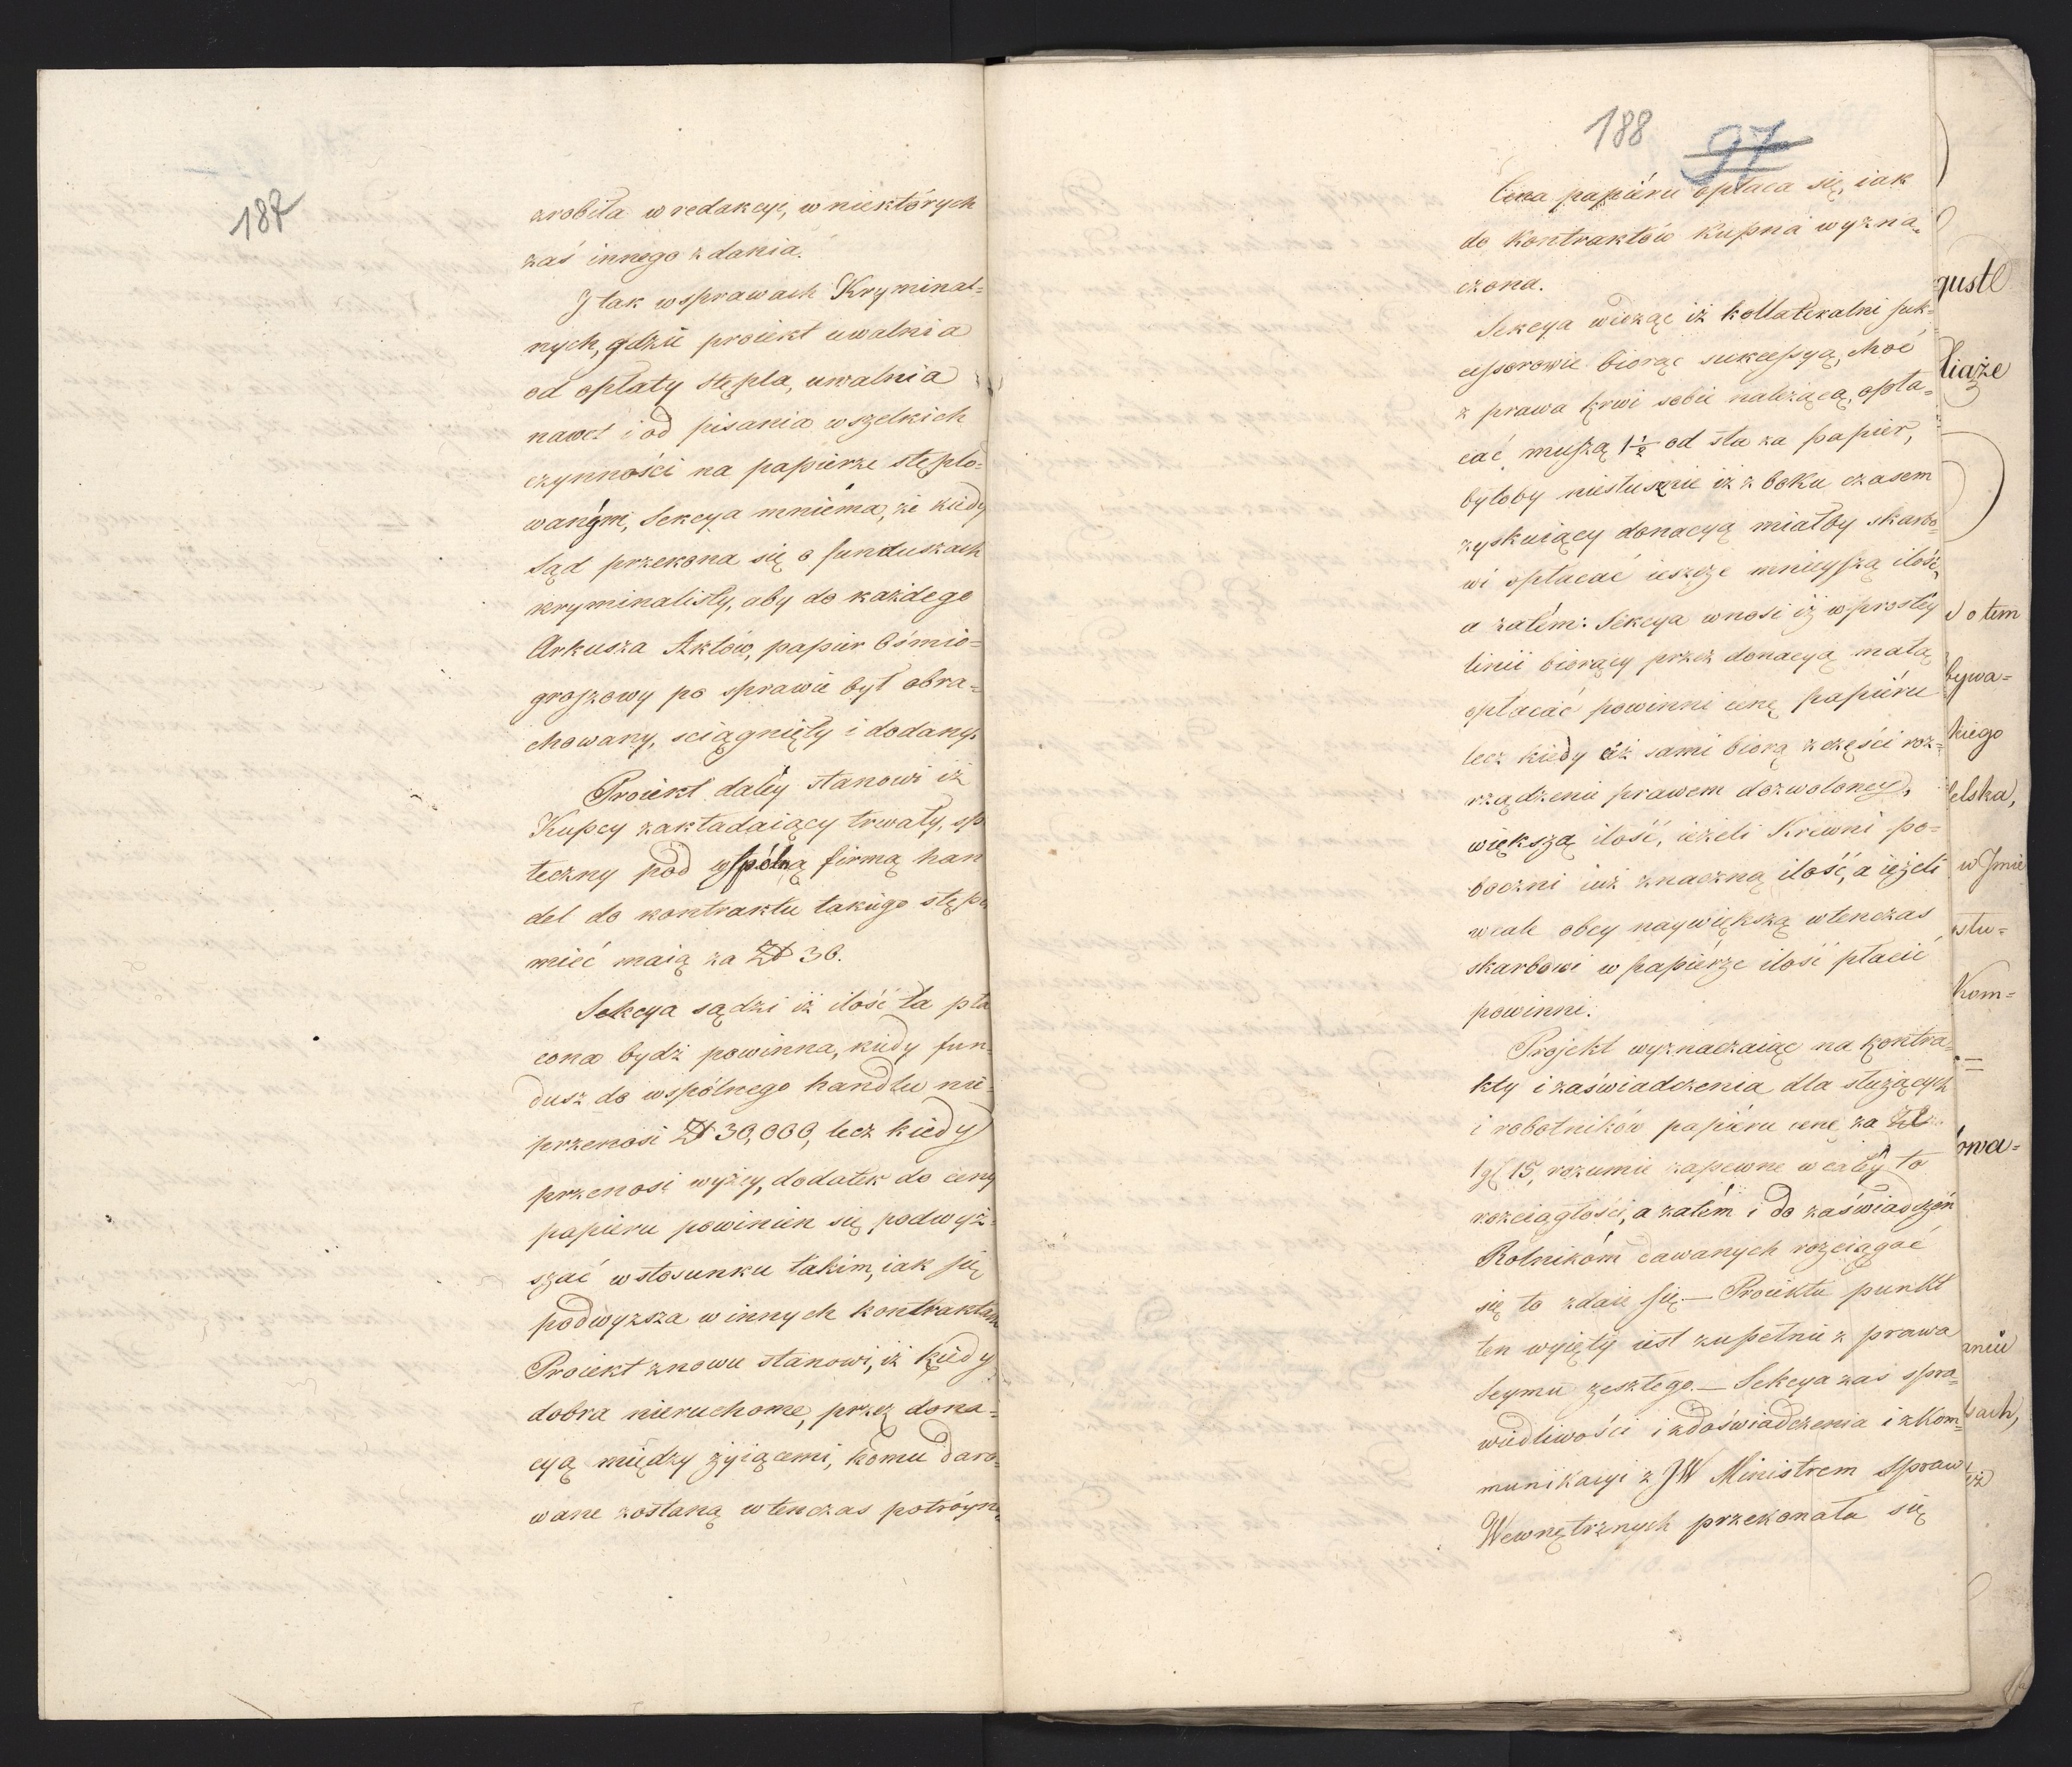 187
zrobiła w redakcyi, w niektórych
zaś innego zdania.
J tak w sprawach Kryminal=
nych, gdzie proiekt uwalnia
od opłaty stępla, uwalnia
nawet i od pisania wszelkich
czynności na papierze stęplo=
wanym, Sekcya mniema, że kiedy
Sąd przekona się o funduszach
kryminalisty, aby do każdego
Arkusza Aktów, papier ośmio=
groszowy po sprawie był obra=
chowany, sciągnięty i dodany.
Proiekt daley stanowi iż
Kupcy zakładaiący trwały, spo
łeczny pod wspólną firmą han
del do kontraktu takiego stępel
mieć maią za Zł 30.
Sekcya sądzi iż ilość ta pła
cona bydź powinna, kiedy fun=
dusz do wspólnego handlu nie=
przenosi Zł 30,000, lecz kiedy
przenosi wyżey, dodatek do ceny
papieru powinien się podwyż=
szać w stosunku takim, iak się
podwyższa w innych kontraktach
Proiekt znowu stanowi, iż kiedy
dobra nieruchome, przez dona=
cyą między żyiącemi, komu daro=
wane zostaną wtenczas potróyna
188 97
Cena papiéru opłaca się, iak
do kontraktów kupna wyzna=
czona.
Sekcya widząc iż kollateralni suk=
cessorowie biorąc sukcessyą, choć
z prawa krwi sobie należącą, opła=
cać muszą 1½ od sta za papier,
byłoby niesłusznie iż z boku czasem
zyskuiący donacyą miałby skarbo=
wi opłacać ieszcze mnieyszą ilość,
a zatém: Sekcya wnosi iż w prostey
linii biorący przez donacyą małą
opłacać powinni cenę papiéru
lecz kiedy ciż sami biorą z części roz=
rządzenia prawem dozwoloney,
większą ilość, ieżeli Krewni po=
boczni iuż znaczną ilość, a ieżeli
wcale obcy naywiększą wtenczas
skarbowi w papiérze ilość płacić
powinni.
Projekt wyznaczaiąc na kontra=
kty i zaświadczenia dla służących
i robotników papiéru cenę za Zł
1 gł 15, rozumie zapewne w całéy to
rozciągłości, a zatém i do zaświadczeń
Rolnikóm dawanych rozciągać
się to zdaie się — Proiektu punkt
ten wyięty iest zupełnie z prawa
Seymu zeszłego. — Sekcya zaś spra=
wiedliwości i z doświadczenia i z Kom=
munikacyi z JW Ministrem Spraw
Wewnętrznych przekonała się
gustl
liąże
o tem
bywa=
kiego
elska,
w Jmie
stu=
Kom=
owa=
aniu
ach,